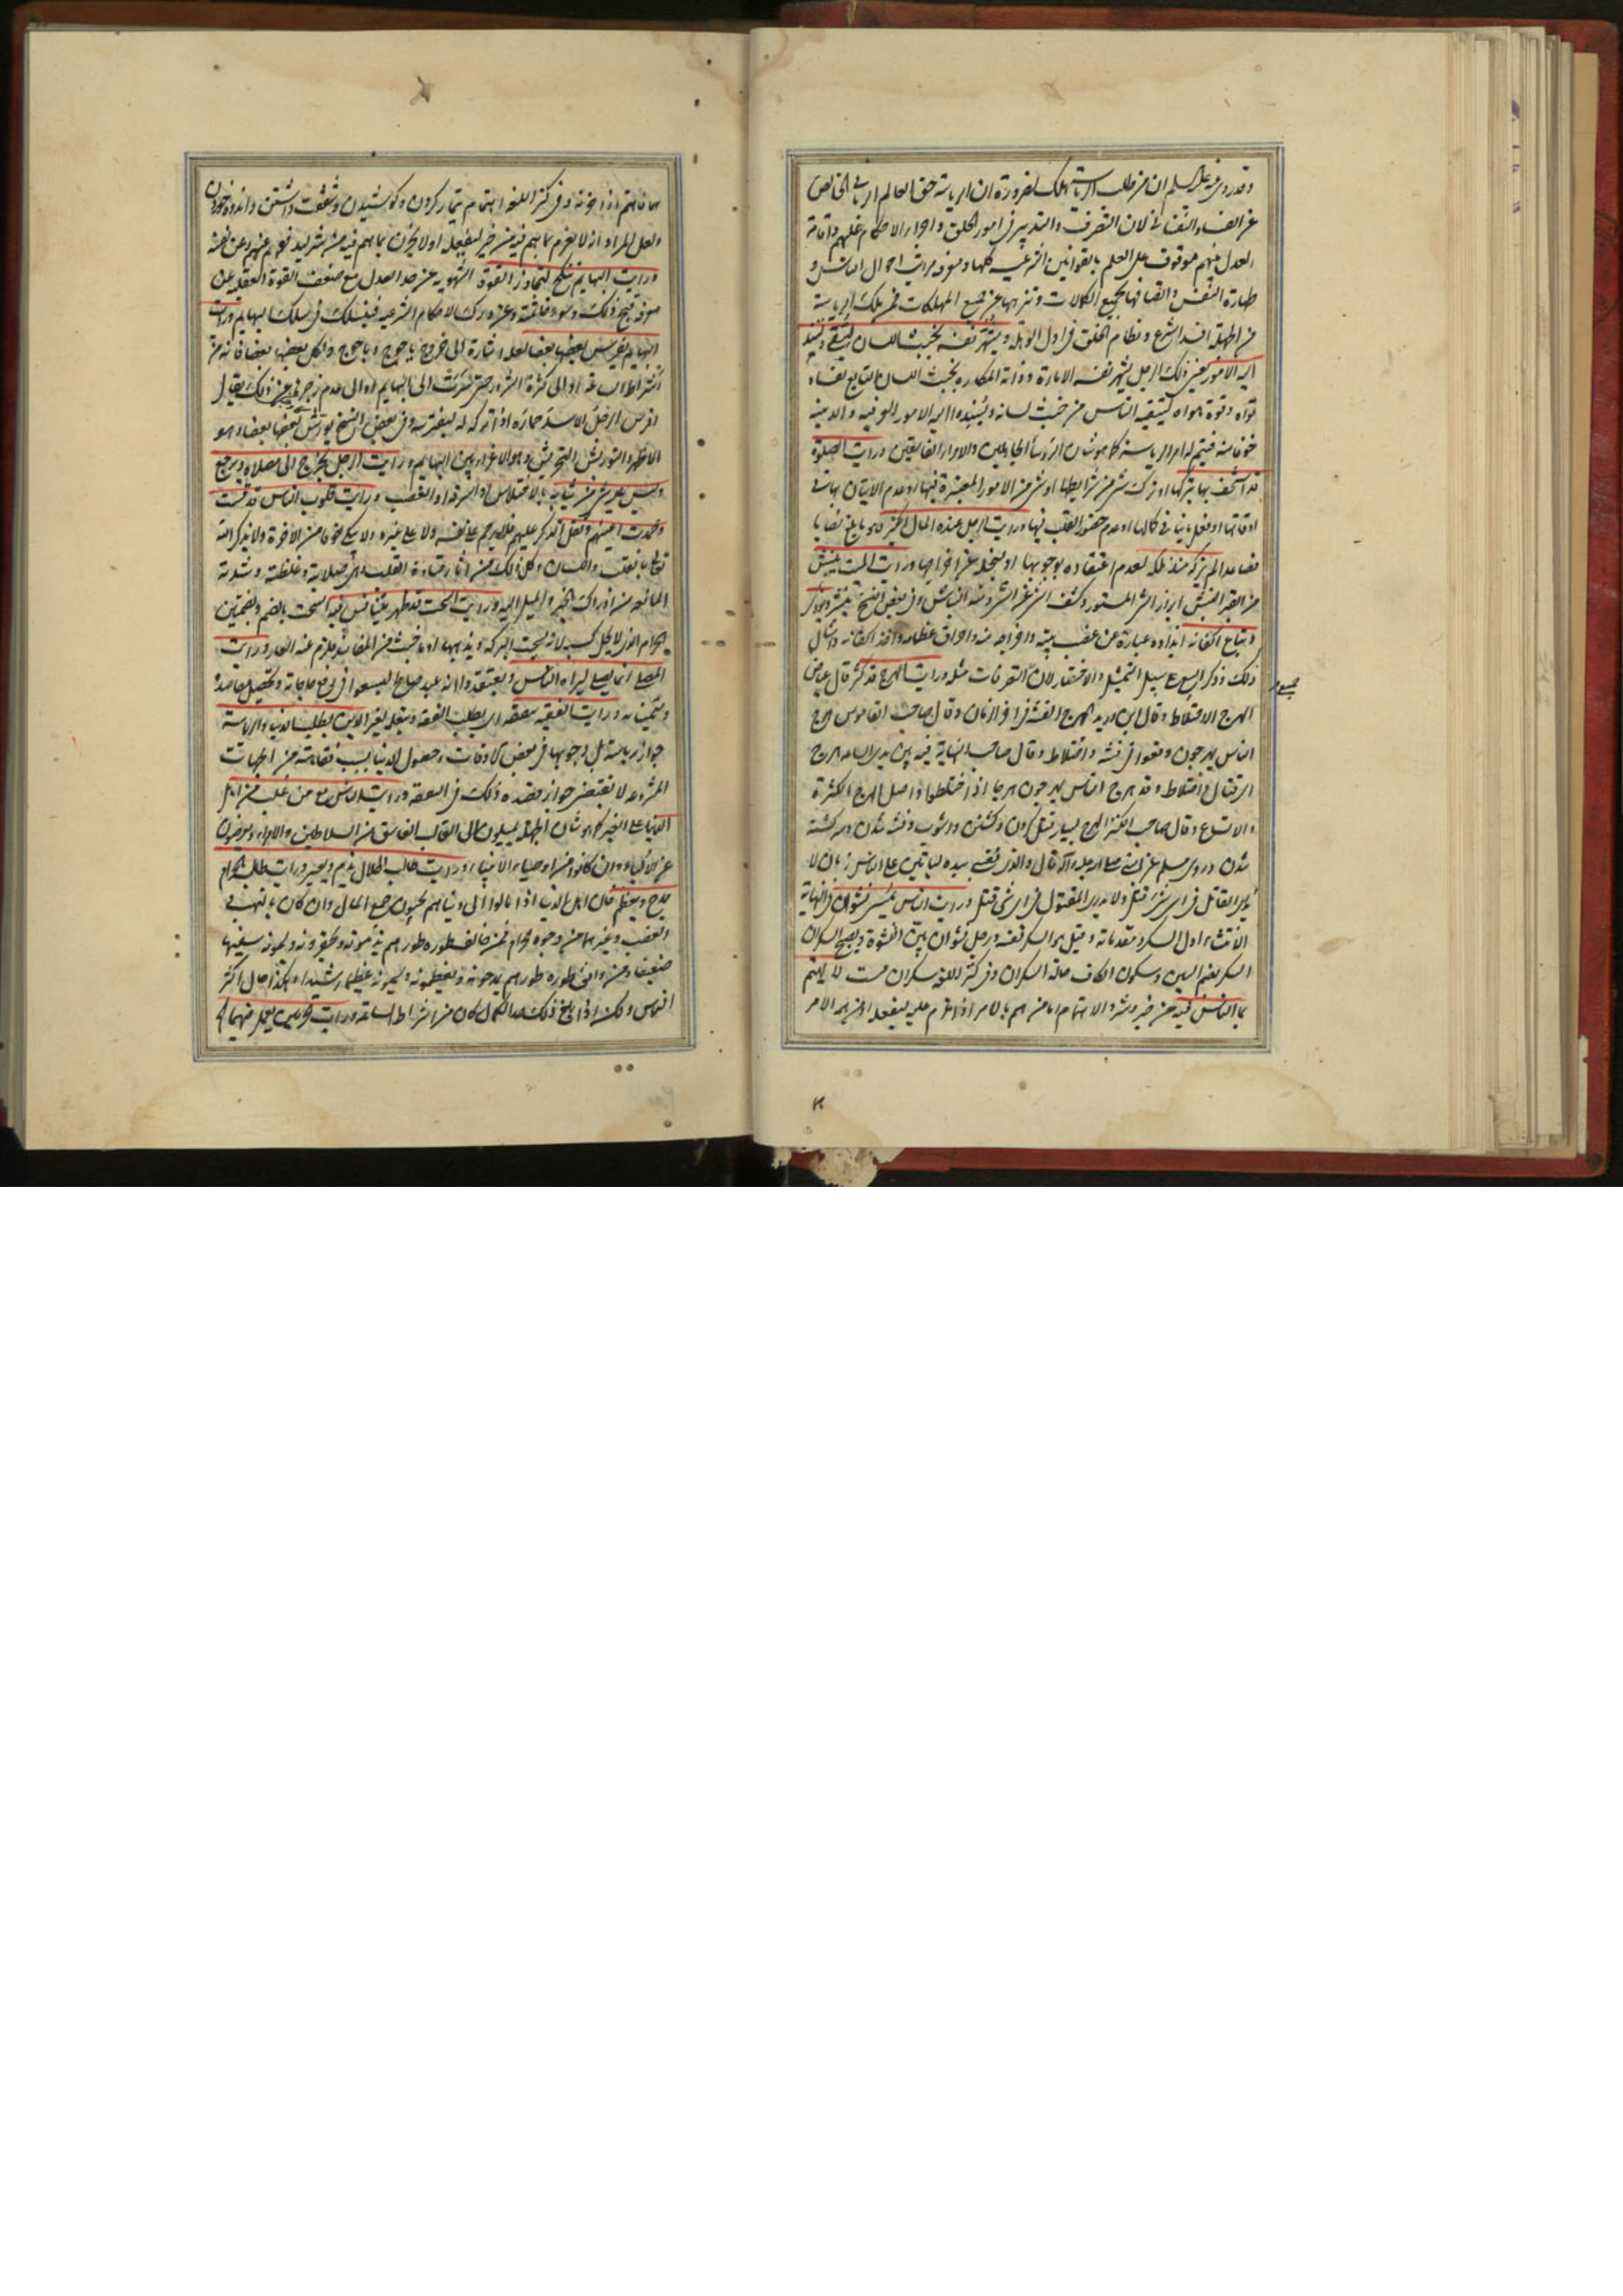 وقد روى عنه عليه السلم ان من طلب الرياسة هلك لضرورة ان الرياسة حق العالم الرباني الخالص
عن الفساد النفساني لان التصرف والتدبير في امور الخلق واجراء الاحكام عليهم واقامة
العدل بينهم موقوف على العلم بالقوانين الشرعية كلها ومعرفة مراتب احوال الناس و
طهارة النفس واتصافها بجميع الكمالات وتنزيهها عن جميع المهلكات فمن تلك الرياسة
من الجهلة افسد الشرع ونظام الخلق في اول الوهلة ويشهر نفسه بخبث اللسان ليتقى ويسند
اليه الامور يعني ذلك الرجل يشهر نفسه الامارة وذاته المكاره بخبث اللسان
قواه وقوة هواه ليتقيه الناس من خبث لسانه ويسندوا اليه الامور العرفية والدينية
خوفا منه فيتم له امر الرياسة كما هو شان الرؤسا الجاهلين والامراء الفاسقين ورايت الصلوة
قد استخف بها بتركها او ترك شيء من شرايطها او شيء من الامور المعتبرة فيها او عدم الاتيان بها في
اوقاتها او فعل ما ينافي كمالها او عدم حضور القلب فيها ورايت الرجل عنده المال الكثير
فصاعدا لم يزكه منذ ملكه لعدم اعتقاده بوجوبها او لبخله عن اخراجها ورايت الميت ينبش
من قبره النبش ابراز الشيء المستور وكشف الشيء عن الشيء ومنه النباش وفي بعض النسخ ينشر ويؤذى
وتباع اكفانه ايذاؤه عبارة عن غضب بيته واخراجه منه واحراق عظامه واخذ اكفانه وامثال
ذلك وذكر البيع على سبيل التمثيل والاختصار لان التصرفات مثله ورايت الهرج قد كثر قال عياض
الهرج الاختلاط وقال ابن دريد الهرج الفتنة في اخر الزمان وقال صاحب القاموس هرج
الناس يهرجون وقعوا في فتنة واختلاط وقال صاحب النهاية فيه بين يدي الساعة هرج
اي قتال واختلاط وقد هرج الناس يهرجون هرجا اذا اختلطوا واصل الهرج الكثرة
والاتساع وقال صاحب الكنز الهرج بسيار قتل كردن وكشتن ودر شوب وفتنه شدن
شدن وروى مسلم عن النبي صلى الله عليه وآله قال والذي نفسي بيده لياتين على الناس زمان لا
يدرى القاتل في اي شيء قتل ولا يدرى المقتول في اي شيء قتل ورايت الناس يمسي نشوان في النهاية
الانتشاء اول السكر ومقدماته وقيل هو السكر نفسه ورجل نشوان بين النشوة ويصبح السكران
السكر بضم السين وسكون الكاف حالة السكران وفي كنز اللغة سكران مست لا يهتم
بما الناس فيه من خير وشر والاهتمام اما من اهم بالامر اذا عزم عليه ليفعله او من اهمه الامر
مهما فاهتم اذا حزنه وفي كنز اللغة اهتمام تيمار كردن وكوشيدن وشفقت داشتن واندوه خوردن
ولعل المراد انه لا يعزم بما هم فيه من خير ليفعله او لا يحزن بما هم فيه من شر ليدفعه عنهم وعن نفسه
ورايت البهايم تنكح لتجاوز القوة الشهوية عن حد العدل مع ضعف القوة العقلية عن
معرفة قبح ذلك وسوء خاتمته وعدم درك الاحكام الشرعية فيسلك في مسلك البهايم ورايت
البهايم يفرس بعضها بعضا لعله اشارة الى خروج ياجوج وماجوج وأكل بعضهم بعضا فانه من
اشراط الساعة او الى كثرة الشره حتى سرت الى البهايم او الى عدم زجرها عن ذلك يقال
افرس الرجل الاسد حماره اذا تركه له ليفترسه وفي بعض النسخ يورش بعضها بعضا وهو
الاظهر والتوريش التحريش وهو الاغراء بين البهايم ورايت الرجل يخرج الى مصلاه ويرجع
وليس عليه شيء من ثيابه بالاختلاس او السرقة او الغضب ورايت قلوب الناس قد قست
وجمدت اعينهم وثقل الذكر عليهم فلا يرحم على نفسه ولا على غيره ولا يبكي خوفا من الآخرة ولا يذكر الله
تعالى بالقلب واللسان وكل ذلك من اثار قساوة القلب وهي صلابته وغلظته وشدته
المانعة من ادراك الخير والميل اليه ورايت السحت قد ظهر يتنافس فيه السحت بالضم وبضمتين
الحرام الذي لا يحل كسبه لانه يسحت البركة ويذهبها او ما خبث من المكاسب فلزم عنه العار ورايت
المصلي انما يصلي ليراه الناس ويعتقدوا انه عبد صالح ليسعوا في رفع حاجاته وتحصيل مقاصده
ورايت الفقيه يتفقه اي يطلب الفقه ويتعلمه لغير الدين يطلب الدنيا والرياسة
جواز رياسته بل وجوبها في بعض الاوقات وحصول الدنيا بسبب فقاهته من الجهات
المشروعة لا يقتضي جواز قصده ذلك في التفقه ورايت الناس مع من غلب من اهل
الدنيا على الخير كما هو شان الجهلة يميلون الى الغالب الفاسق من السلاطين والامراء ويعرضون
عن الاتقياء وان كانوا من اوصياء الانبياء ورايت طالب الحلال يذم ويعير ورايت طالب الحرام
يمدح ويعظم فان اهل الدنيا اذا مالوا الى دنياهم يحبون جمع المال وان كان بالنهب و
الغضب وغيرهما من وجوه الحرام فمن خالف طوره طورهم يذمونه ويحقرونه ويسمونه سفيها
ضعيفا ومن وافق طوره طورهم يمدحونه ويعظمونه ويسمونه عظيما رشيدا وهكذا حال اكثر
الناس ولكن اذا بلغ ذلك حد الكمال كان من اشراط الساعة ورايت الحرمين يعمل فيهما